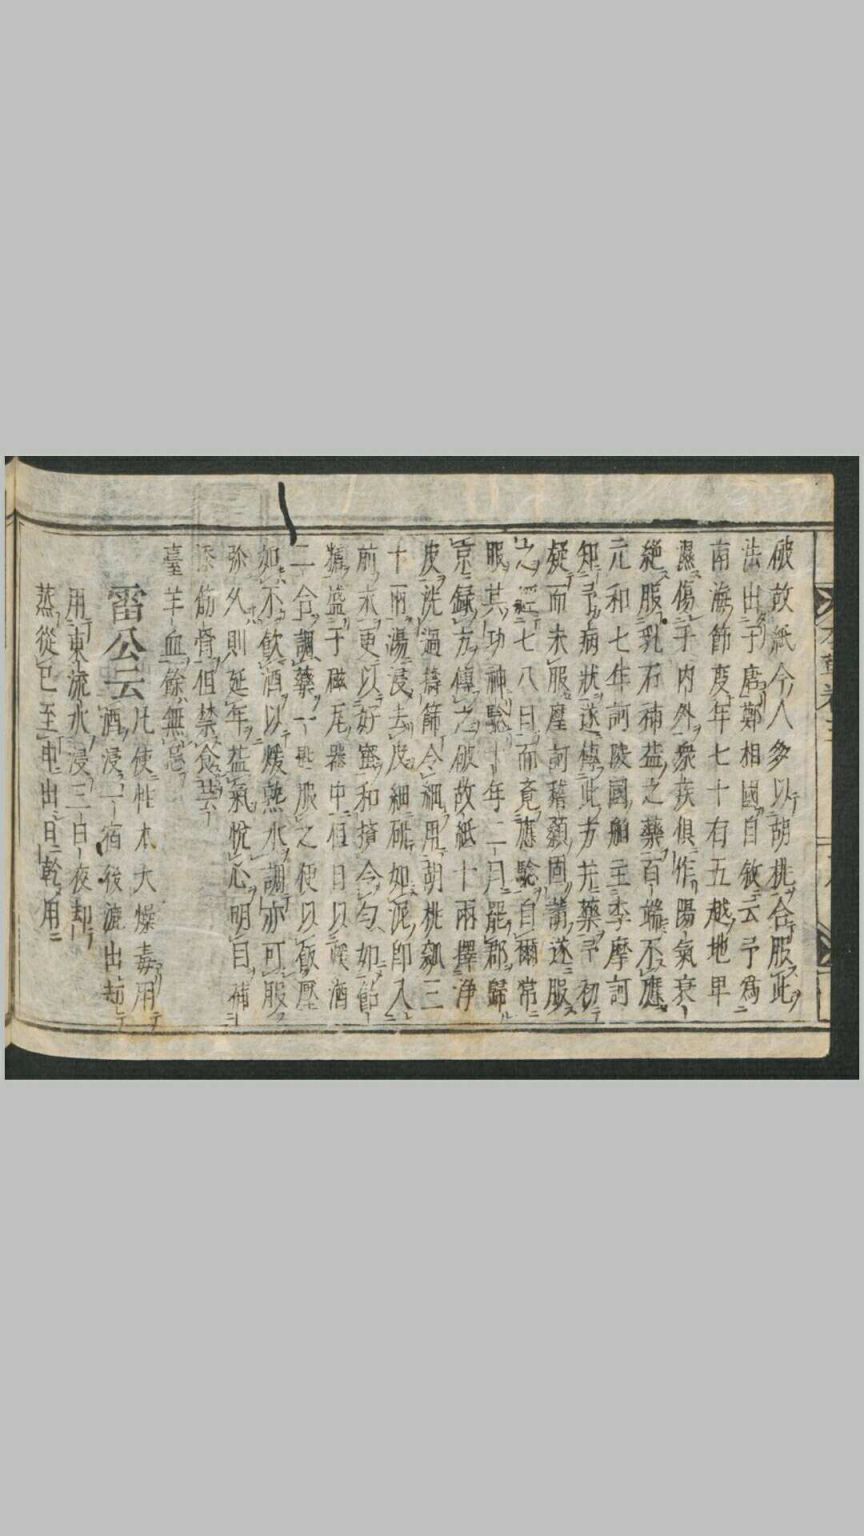 破故紙今人多以胡桃合服此
法出于唐鄭相國自敘云予為
南海節度年七十有五越地卑
濕傷于内外衆疾俱作陽氣衰
絶服乳石補益之藥百端不應
元和七年訶陵國舶主李摩訶
知予病狀遂傳此方并藥予初
疑而未服摩訶稽顙固請遂服
之經七八日而竟應驗自爾常
服其功神驗十年二月罷郡歸
京録方傳之破故紙十兩擇浄
皮洗過擣篩令細用胡桃瓤三
十兩湯浸去皮細硏如泥即入
前末更以好蜜和攪令勻如飴
糖盛于磁瓦器中但日以煖酒
二合調藥一匙服之便以飯壓
如不飲酒以煖熟水調亦可服
弥久則延年益氣悅心明目補
添筋骨但禁食芸
薹羊血餘無忌
雷公云
凡使性本大燥毒用
酒浸一宿後漉出却
用東流水浸三日夜却
蒸從巳至申出日乾用